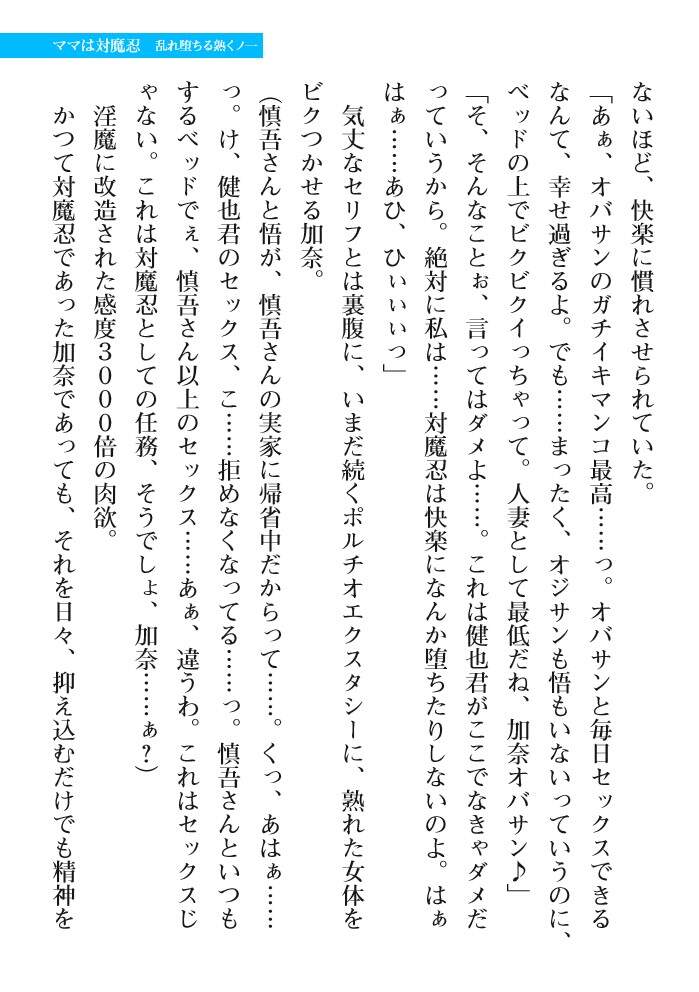 ママは対魔忍　乱れ堕ちる熟くノ一
ないほど、快楽に慣れさせられていた。
「あぁ、オバサンのガチイキマンコ最高……っ。オバサンと毎日セックスできる
なんて、幸せ過ぎるよ。でも……まったく、オジサンも悟もいないっていうのに、
ベッドの上でビクビクイっちゃって。人妻として最低だね、加奈オバサン♪」
「そ、そんなことぉ、言ってはダメよ……。これは健也君がここでなきゃダメだ
っていうから。絶対に私は……対魔忍は快楽になんか堕ちたりしないのよ。はぁ
はぁ……あひ、ひぃぃぃっ」
気丈なセリフとは裏腹に、いまだ続くポルチオエクスタシーに、熟れた女体を
ビクつかせる加奈。
（慎吾さんと悟が、慎吾さんの実家に帰省中だからって……。くっ、あはぁ……
っ。け、健也君のセックス、こ……拒めなくなってる……っ。慎吾さんといつも
するベッドでぇ、慎吾さん以上のセックス……あぁ、違うわ。これはセックスじ
ゃない。これは対魔忍としての任務、そうでしょ、加奈……ぁ？）
淫魔に改造された感度３０００倍の肉欲。
かつて対魔忍であった加奈であっても、それを日々、抑え込むだけでも精神を